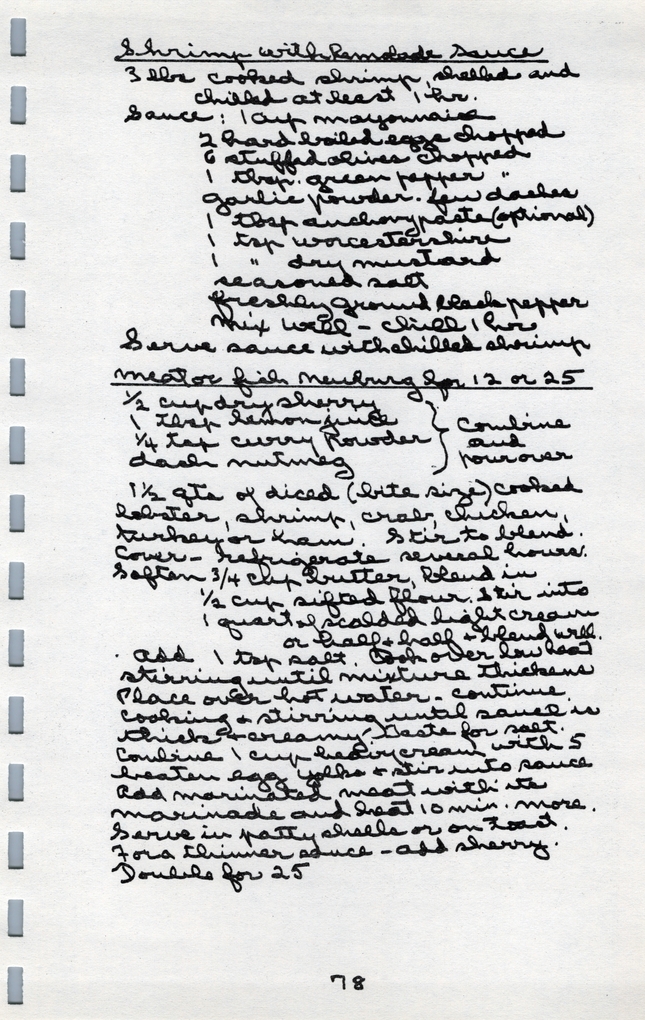 Shrimp with Remolade Sauce
3 lbs cooked shrimp, shelled and
chilled at least 1 hr.
Sauce: 1 cup mayonnaise
2 hard boiled eggs chopped
6 stuffed olives chopped
1 tbsp. green pepper "
garlic powder. few dashes
1 tbsp anchovy paste (optional)
1 tsp worcestershire
1 " dry mustard
seasoned salt
freshly ground black pepper
Mix well - chill 1 hr
Serve sauce with chilled shrimp
Meat or fish Newburg for 12 or 25
1/2 cup dry sherry
1 tbsp lemon juice
1/4 tsp curry Powder
dash nutmeg
} Combine
and
pour over
1 1/2 qts of diced (bite size) cooked
lobster, shrimp, crab, chicken,
turkey or ham. Stir to blend.
Cover - refrigerate several hours.
Soften 3/4 cup butter, blend in
1/2 cup sifted flour. Stir into
1 quart of scalded light cream
or half + half + blend well.
Add 1 tsp salt. Cook over low heat
stirring until mixture thickens
Place over hot water - continue
cooking + stirring until sauce is
thick + creamy. Taste for salt.
Combine 1 cup heavy cream with 5
beaten egg yolks + stir into sauce
Add marinated meat with its
marinade and heat 10 min. more.
Serve in patty shells or on Toast.
For a thinner sauce - add sherry.
Double for 25
78